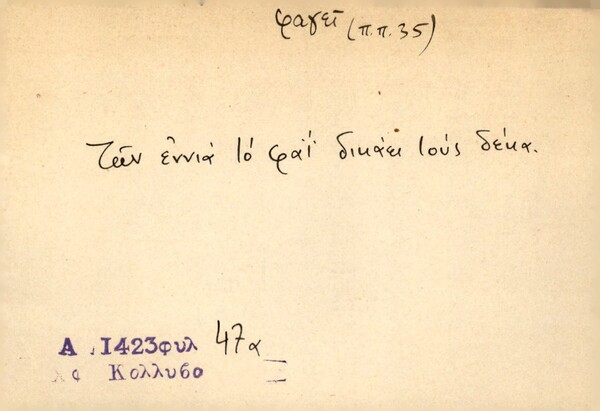 φαγεῖ (π.π. 35)
Τῶν ἐννιά τό φαΐ δικάει τούς δέκα.
Α .1423φυλ 47α
Κολλυβο